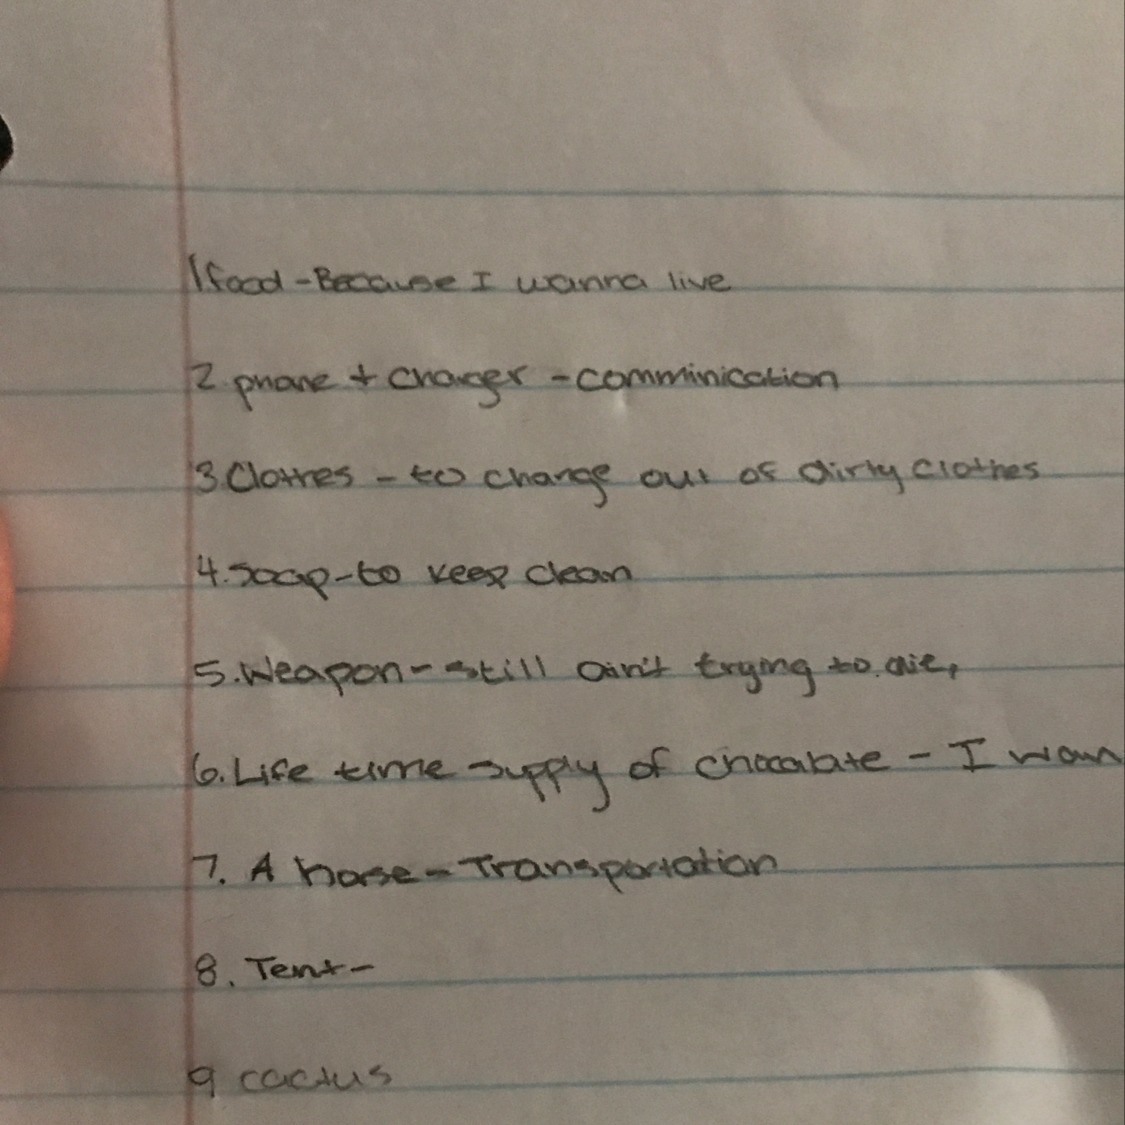 1 food - Because I wanna live
2. phone + charger - comminication
3. Clothes - to change out of dirty clothes
4. Soap - to keep clean
5. Weapon - still ain't trying to die,
6. Life time supply of chocolate - I wan
7. A horse - Transportation
8. Tent -
9 cactus